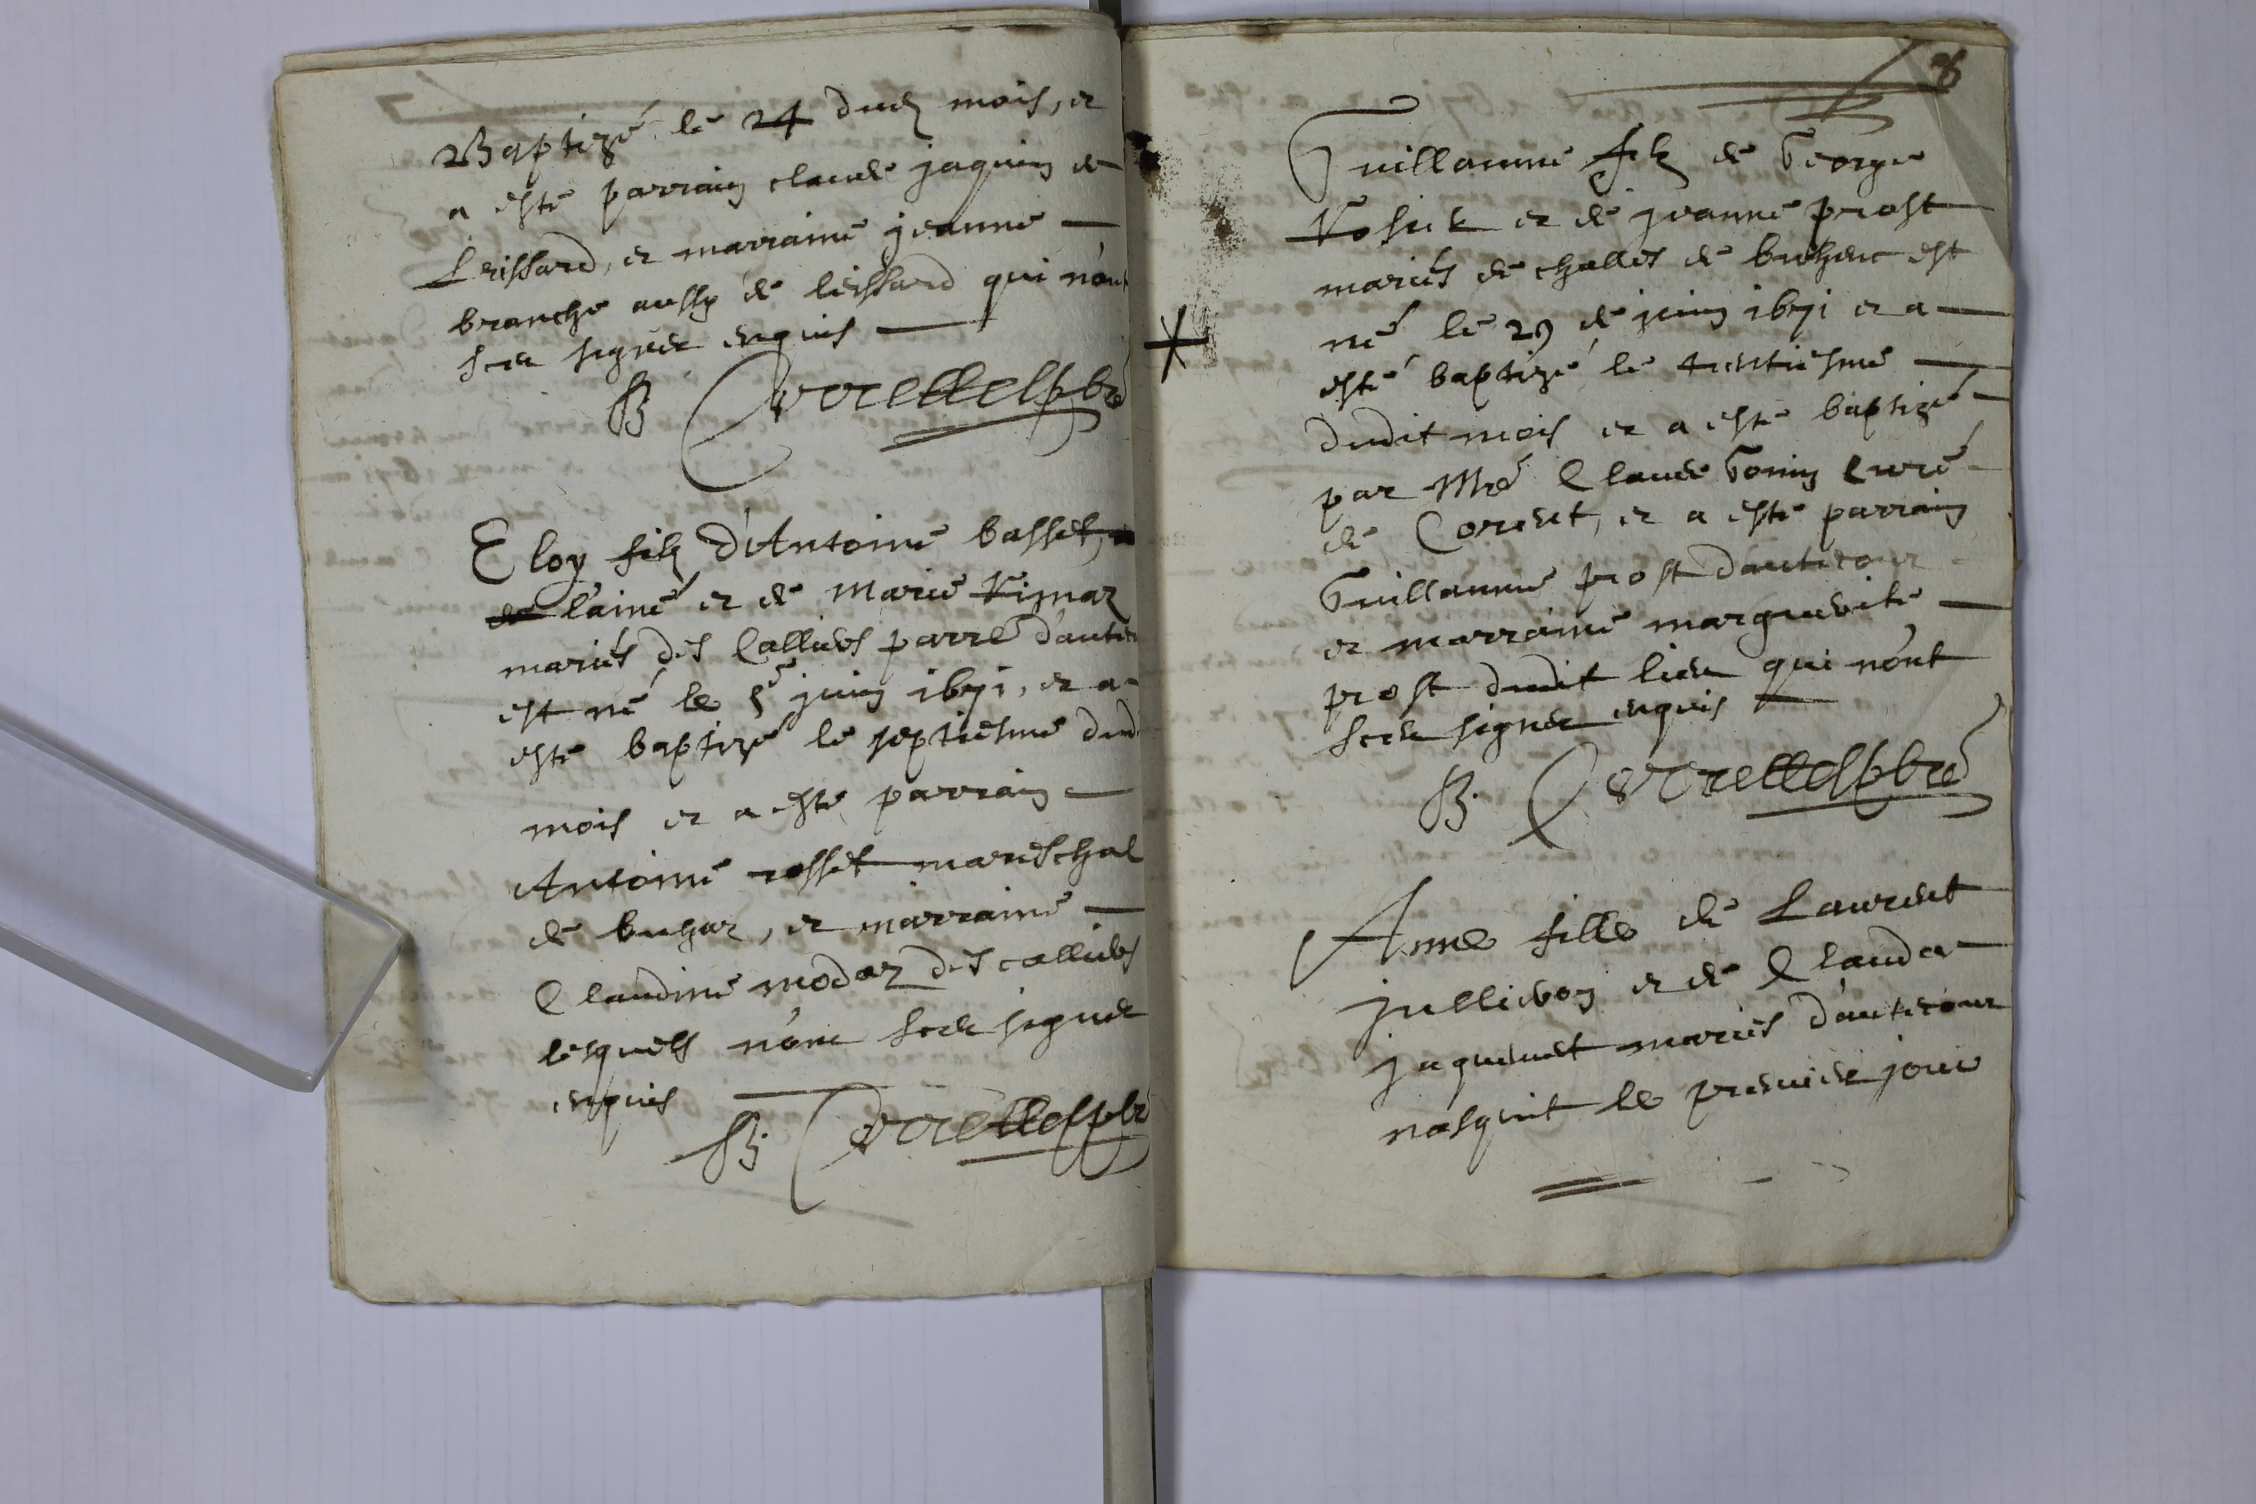 Baptizé le 24 dud mois, et
a esté parrain claude jaquin de
Leissard, et marraine jeanne
branche aussy de leissard qui n'ont
sceu signer enquis
B
Eloy filz d'Antoine basset,
de l'ainé et de Marie
mariés des Callies parre d'autre
est né le 5e juin 1671, et a
esté baptizé le septiesme dud
mois et a esté parrain
Antoine rosset mareschal
de buhar, et marraine
Claudine modaz des callies
lesquels n'ont sceu signer
enquis
B.
Guillaume filz de George
et de jeanne prost
mariés de challes de est
né le 29 de juin 1671 et a
esté baptizé le trentiesme
dudit mois et a esté baptizé
par Mre Claude Gonin Curé
de Corent, et a esté parrain
Guillaume prost d'autecour
et marraine marguerite
prost dudit lieu qui n'ont
sceu signer enquis
B.
Anne fille de Laurent
jullieron et de Clauda
jaquemet mariés d'autecour
nasquit le premier jour